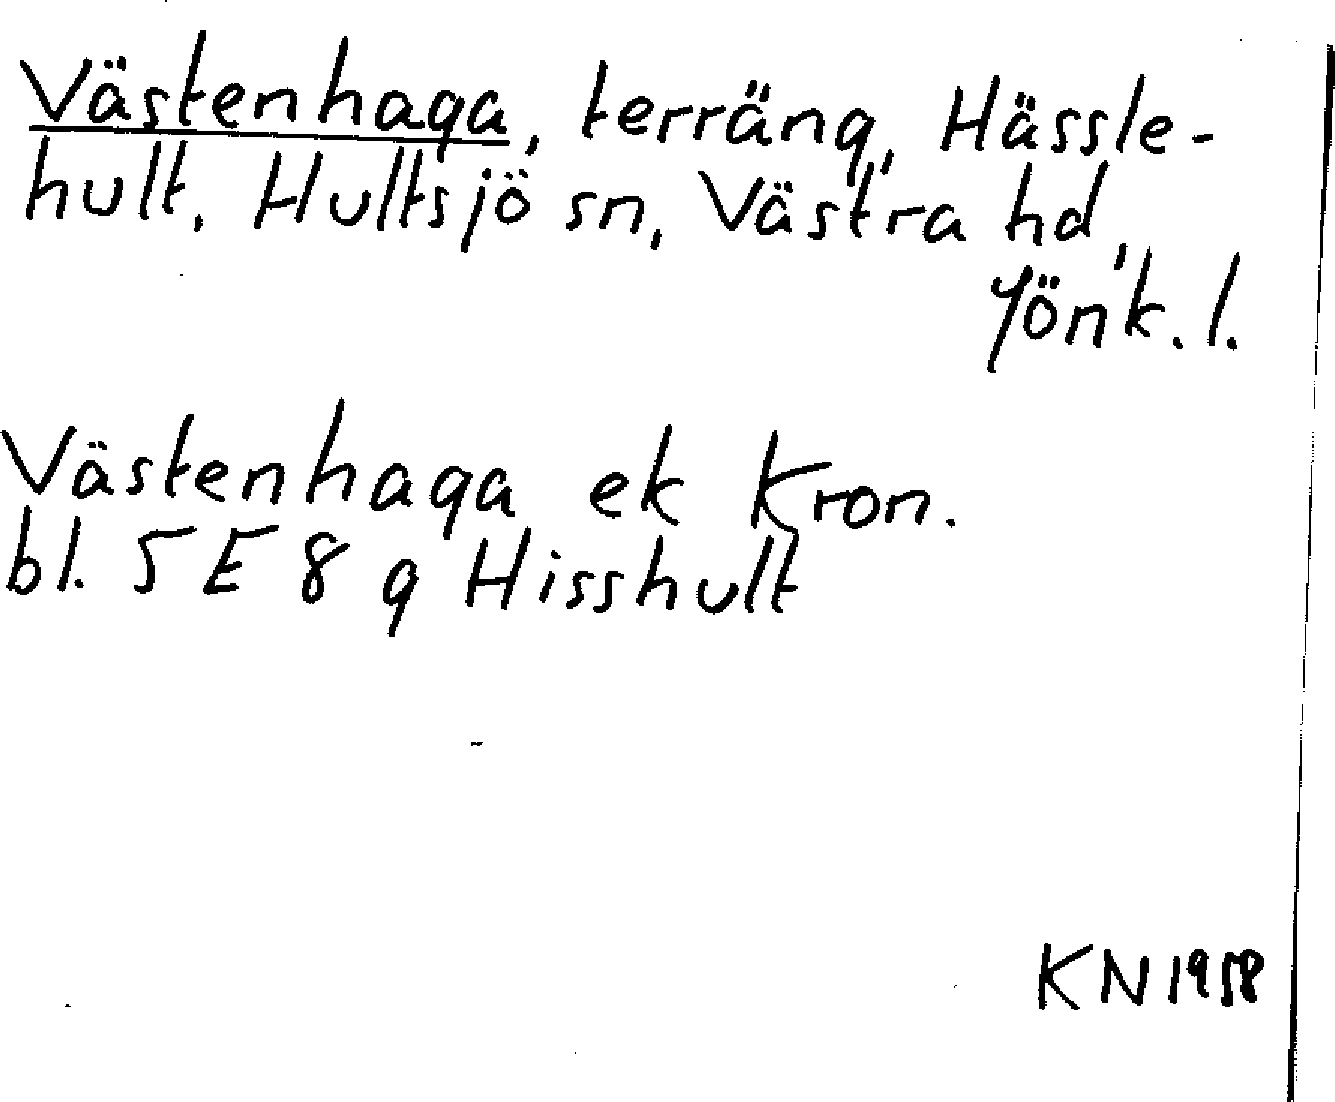 Västenhaga, terräng, Hässle-
hult, Hultsjö sn, Västra hd,
Jönk. l.
Västenhaga ek Kron.
bl. 5E 8g Hisshult
KN 1958